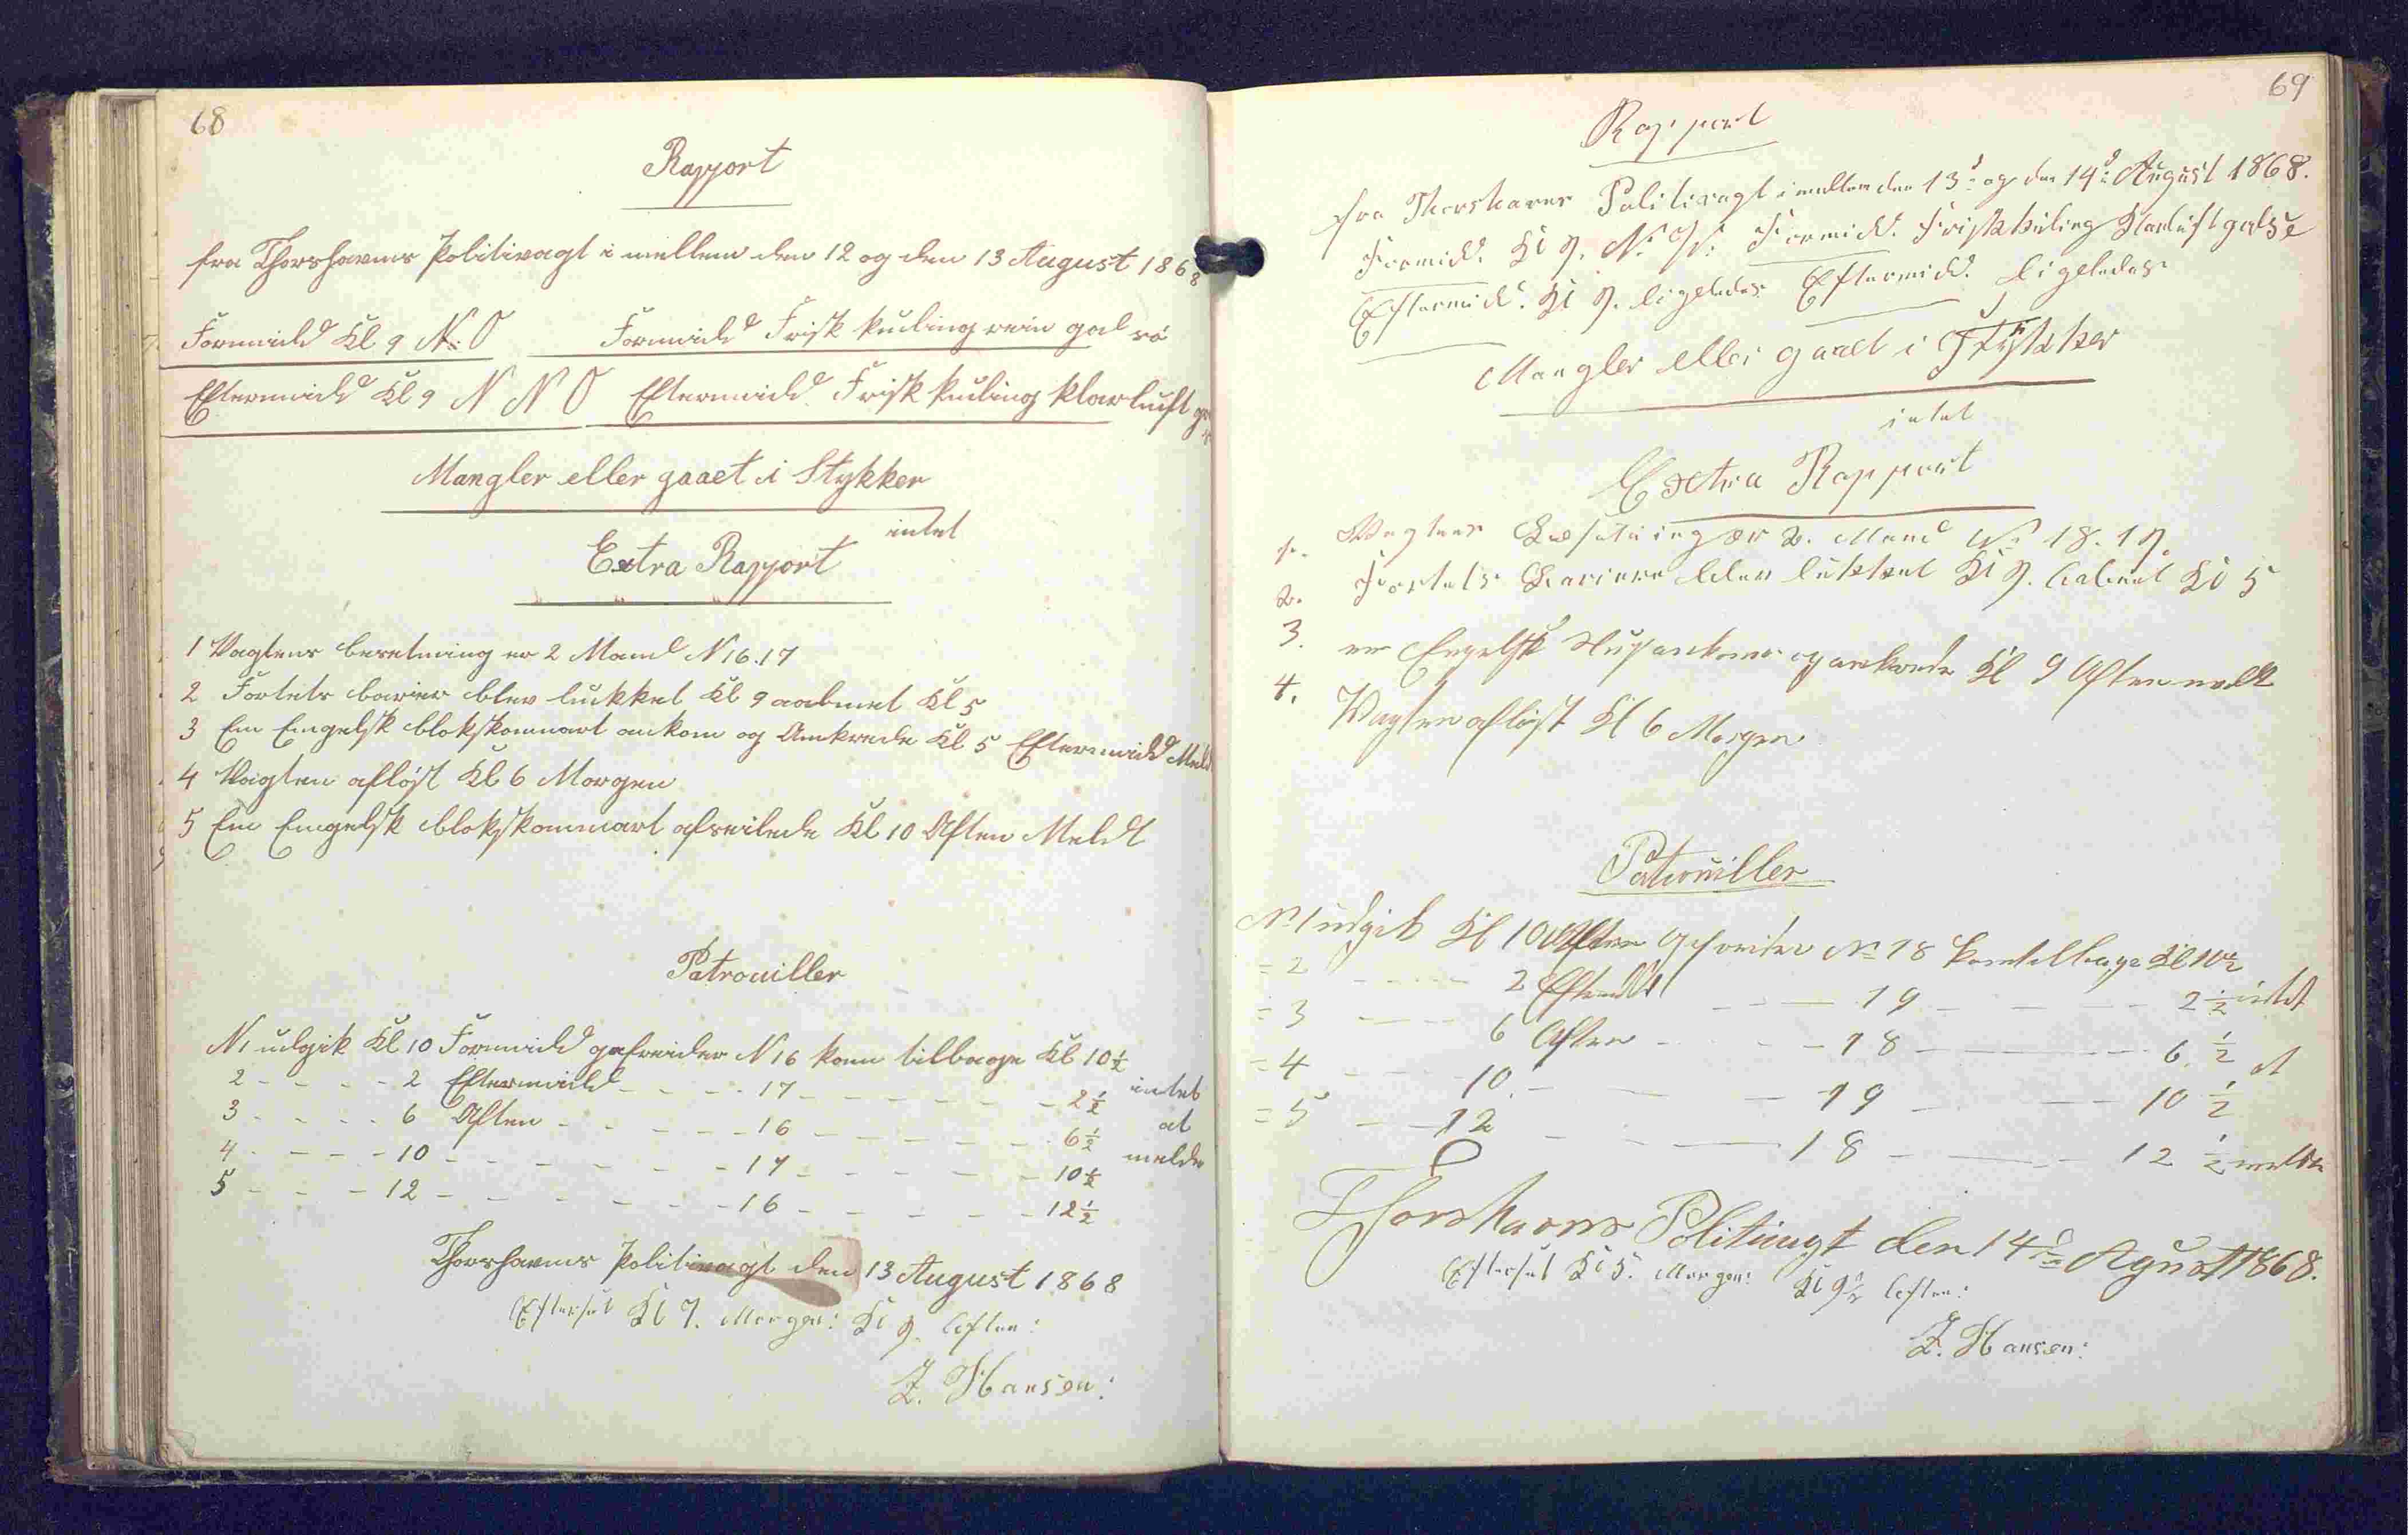 68
Rapport
fra Thorshavns Politivagt i mellem den 12 og den 13 August 1868
Formidd Kl 9 N. O Formidd Frisk kuling rein gal ró
Eftermidd Kl 9 N N O Eftermidd Frisk kuling klarluft
Mangler eller gaaet i Stykker
intet
Extra Rapport
1 Vagtens besetning er 2 Mand N 16. 17
2 Fortets barier blev lukket Kl 9 aabnet Kl 5
3 Em Engelsk blokskonnart ankom og Ankrede Kl 5 Eftermidd Meldt
4 Vagten afløst Kl 6 Morgen
5 Em Engelsk blokskonnart afseilede Kl 10 Aften Meldt
Patrouiller
N 1 udgik Kl 10 Formidd gefreider N 16 kom tilbage Kl 10 ½
2 - - - - 2 Eftermidd - - - - 17 - - - - - - 2 ½ intet
3 - - - - 6 Aften - - - - - 16 - - - - - - 6 ½ at
4 - - - - 10 - - - - - - - 17 - - - - - 10 ½ melde
5 - - - 12 - - - - - - - 16 - - - - - 12 ½
Thorshavns Politivagt den 13 August 1868
Efterset Kl 7. Morgen: Kl 9. Aften:
Z. Hansen:
69
Rapport
fra Thorshavns Politivagt imellem den 13d og den 14d August 1868.
Formidd. Kl 9. N. O. Formidd. Friskkuling Klarluft
Eftermidd. Kl 9. ligeledes Eftermidd. ligeledes
Mangler eller gaaet i Stykker
intet
Extra Rapport
1. Vagtens Besætning er 2. Mand No 18. 19.
2. Fortets Bariere blev lukket Kl 9. aabnet Kl 5
3. en Engelsk ankom og ankrede Kl 9 Aften meldt
4. Vagten afløst Kl 6 Morgen
Patrouiller
No 1 udgik Kl 10 Aften Gefreider No 18 kom tilbage Kl 10 ½
= 2 - - - - - 2 Eftmidd - - - 19 - - - 2 ½ intet
= 3 - - - - 6 Aften - - - 18 - - - - 6. ½ at
= 4 - - - - 10. - - - 19 - - - 10 ½
= 5 - - 12 - - - 18 - - - 12 ½ melde
Thorshavns Politivagt den 14de Agust 1868.
Efterset Kl 5. Morgen: Kl 9½ Aften:
Z. Hansen: